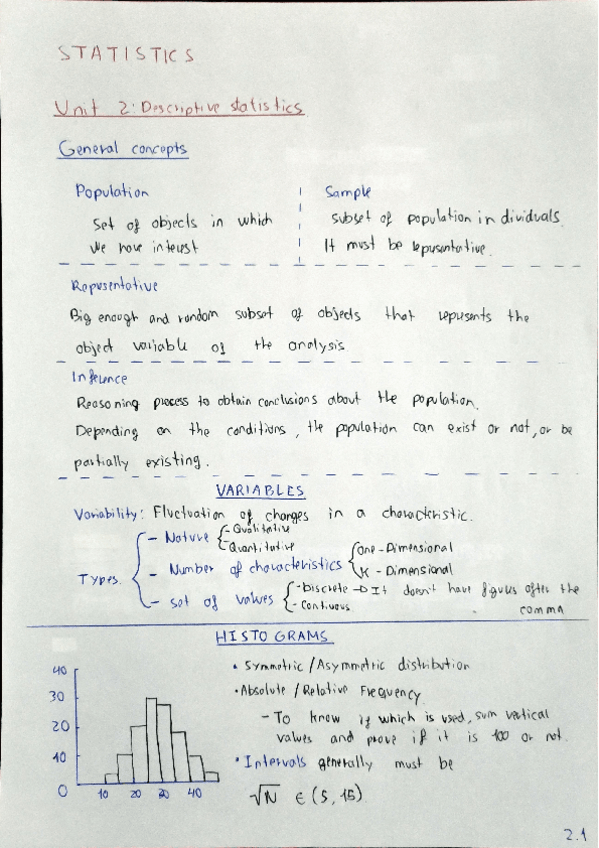 STATISTICS
Unit 2: Descriptive statistics
General concepts
Population
Set of objects in which
we have interest
Sample
subset of population individuals.
It must be representative.
Representative
Big enough and random subset of objects that represents the
object variable of the analysis
Inference
Reasoning process to obtain conclusions about the population.
Depending on the conditions, the population can exist or not, or be
partially existing.
VARIABLES
Variability: Fluctuation of changes in a characteristic.
Types.
- Nature
- Qualitative
- Quantitative
- Number of characteristics
One - Dimensional
K - Dimensional
- set of values
- Discrete → It doesn't have figures after the
comma
- Continuous
HISTOGRAMS
40
30
20
10
0
10 20 30 40
• Symmetric / Asymmetric distribution
• Absolute / Relative Frequency
- To know if which is used, sum vertical
values and prove if it is 100 or not.
• Intervals generally must be
√N ∈ (5, 15)
2.1